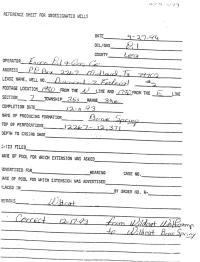 REFERENCE SHEET FOR UNDESIGNATED WELLS
DATE 4-27-94
COUNTY Lea
OPERATOR Enron Oil & Gas Co
ADDRESS P.O. Box 2267 Midland, Tx 79702
LEASE NAME, WELL NO. Federal
FOOTAGE LOCATION FROM THE N LINE AND FROM THE E LINE
SECTION 7 TOWNSHIP 25s RANGE
COMPLETION DATE
NAME OF PRODUCING FORMATION Bone Spring
TOP OF PERFORATIONS 12267-12,371
DEPTH TO CASING SHOE
C-123 FILED
NAME OF POOL FOR WHICH EXTENSION WAS ASKED
ADVERTISED FOR HEARING CASE NO.
NAME OF POOL FOR WHICH EXTENSION WAS ADVERTISED
PLACED IN BY ORDER NO. R-
REMARKS Wildcat
Correct 12-17-93 from Wildcat Wolfcamp
to Wildcat Bone Spring